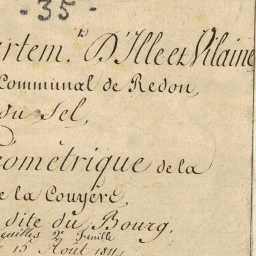 - 35 -
rtem.t D'Ille et Vilaine
Communal de Redon,
du Sel,
éométrique de la
e la Couyère,
dite du Bourg,
feuilles 2e feuille
15 Août 1811